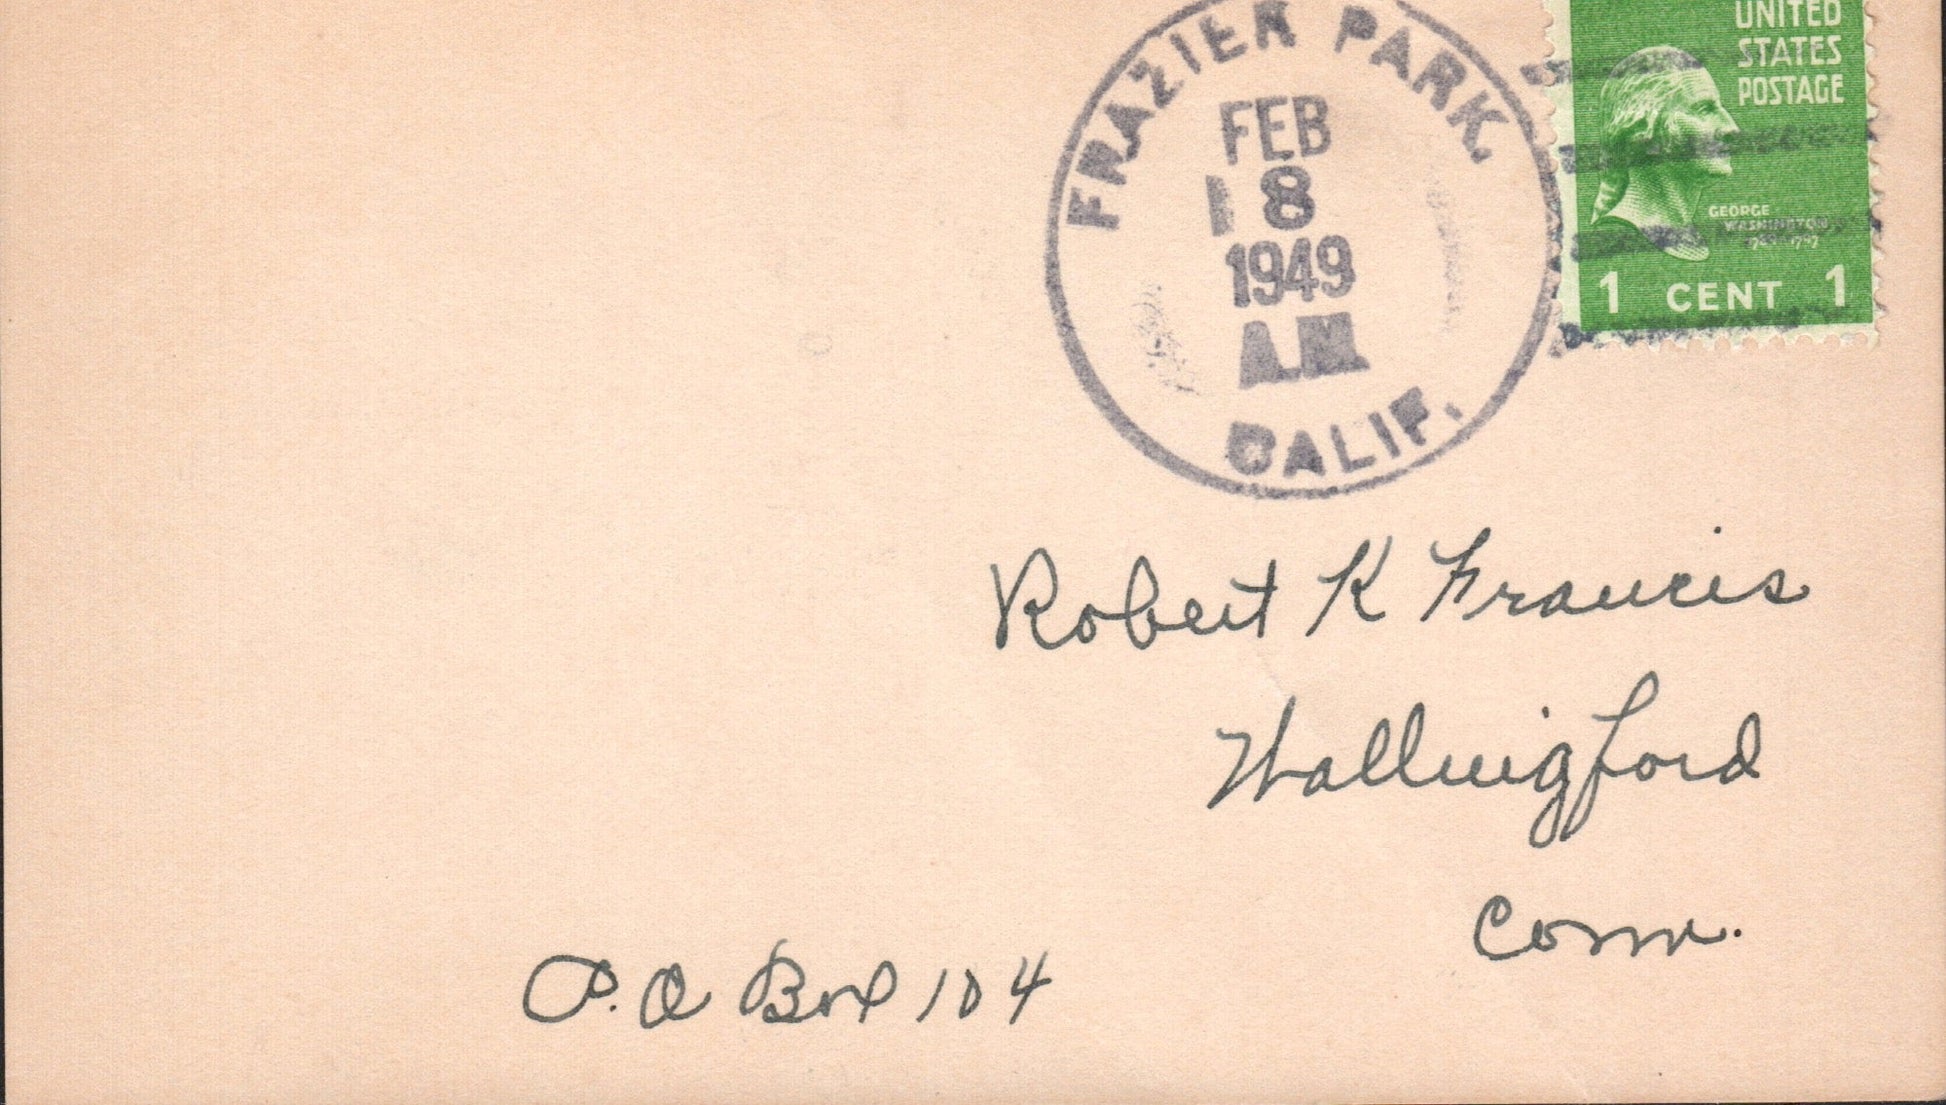 FRAZIER PARK.
FEB
8
1949
A.M.
CALIF.
UNITED
STATES
POSTAGE
GEORGE
WASHINGTON
1 CENT 1
Robert K Francis
Wallingford
Conn.
P.O Box 104